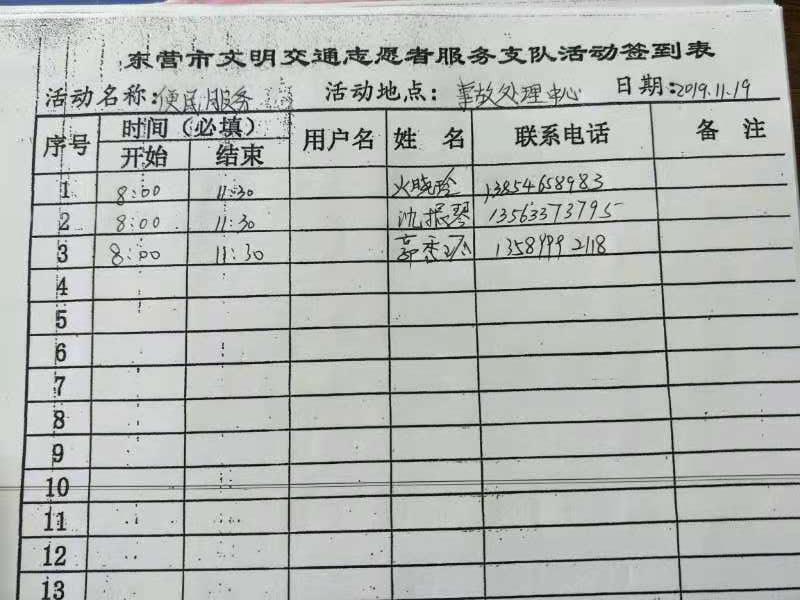 东营市文明交通志愿者服务支队活动签到表
活动名称:便民服务 活动地点:事故处理中心 日期:2019.11.19
序号 时间(必填) 用户名 姓 名 联系电话 备 注
开始 结束
1 8:00 11:30 火晓玲 13854658983
2 8:00 11:30 沈振琴 13563373795
3 8:00 11:30 郭秀 13589992118
4
5
6
7
8
9
10
11
12
13